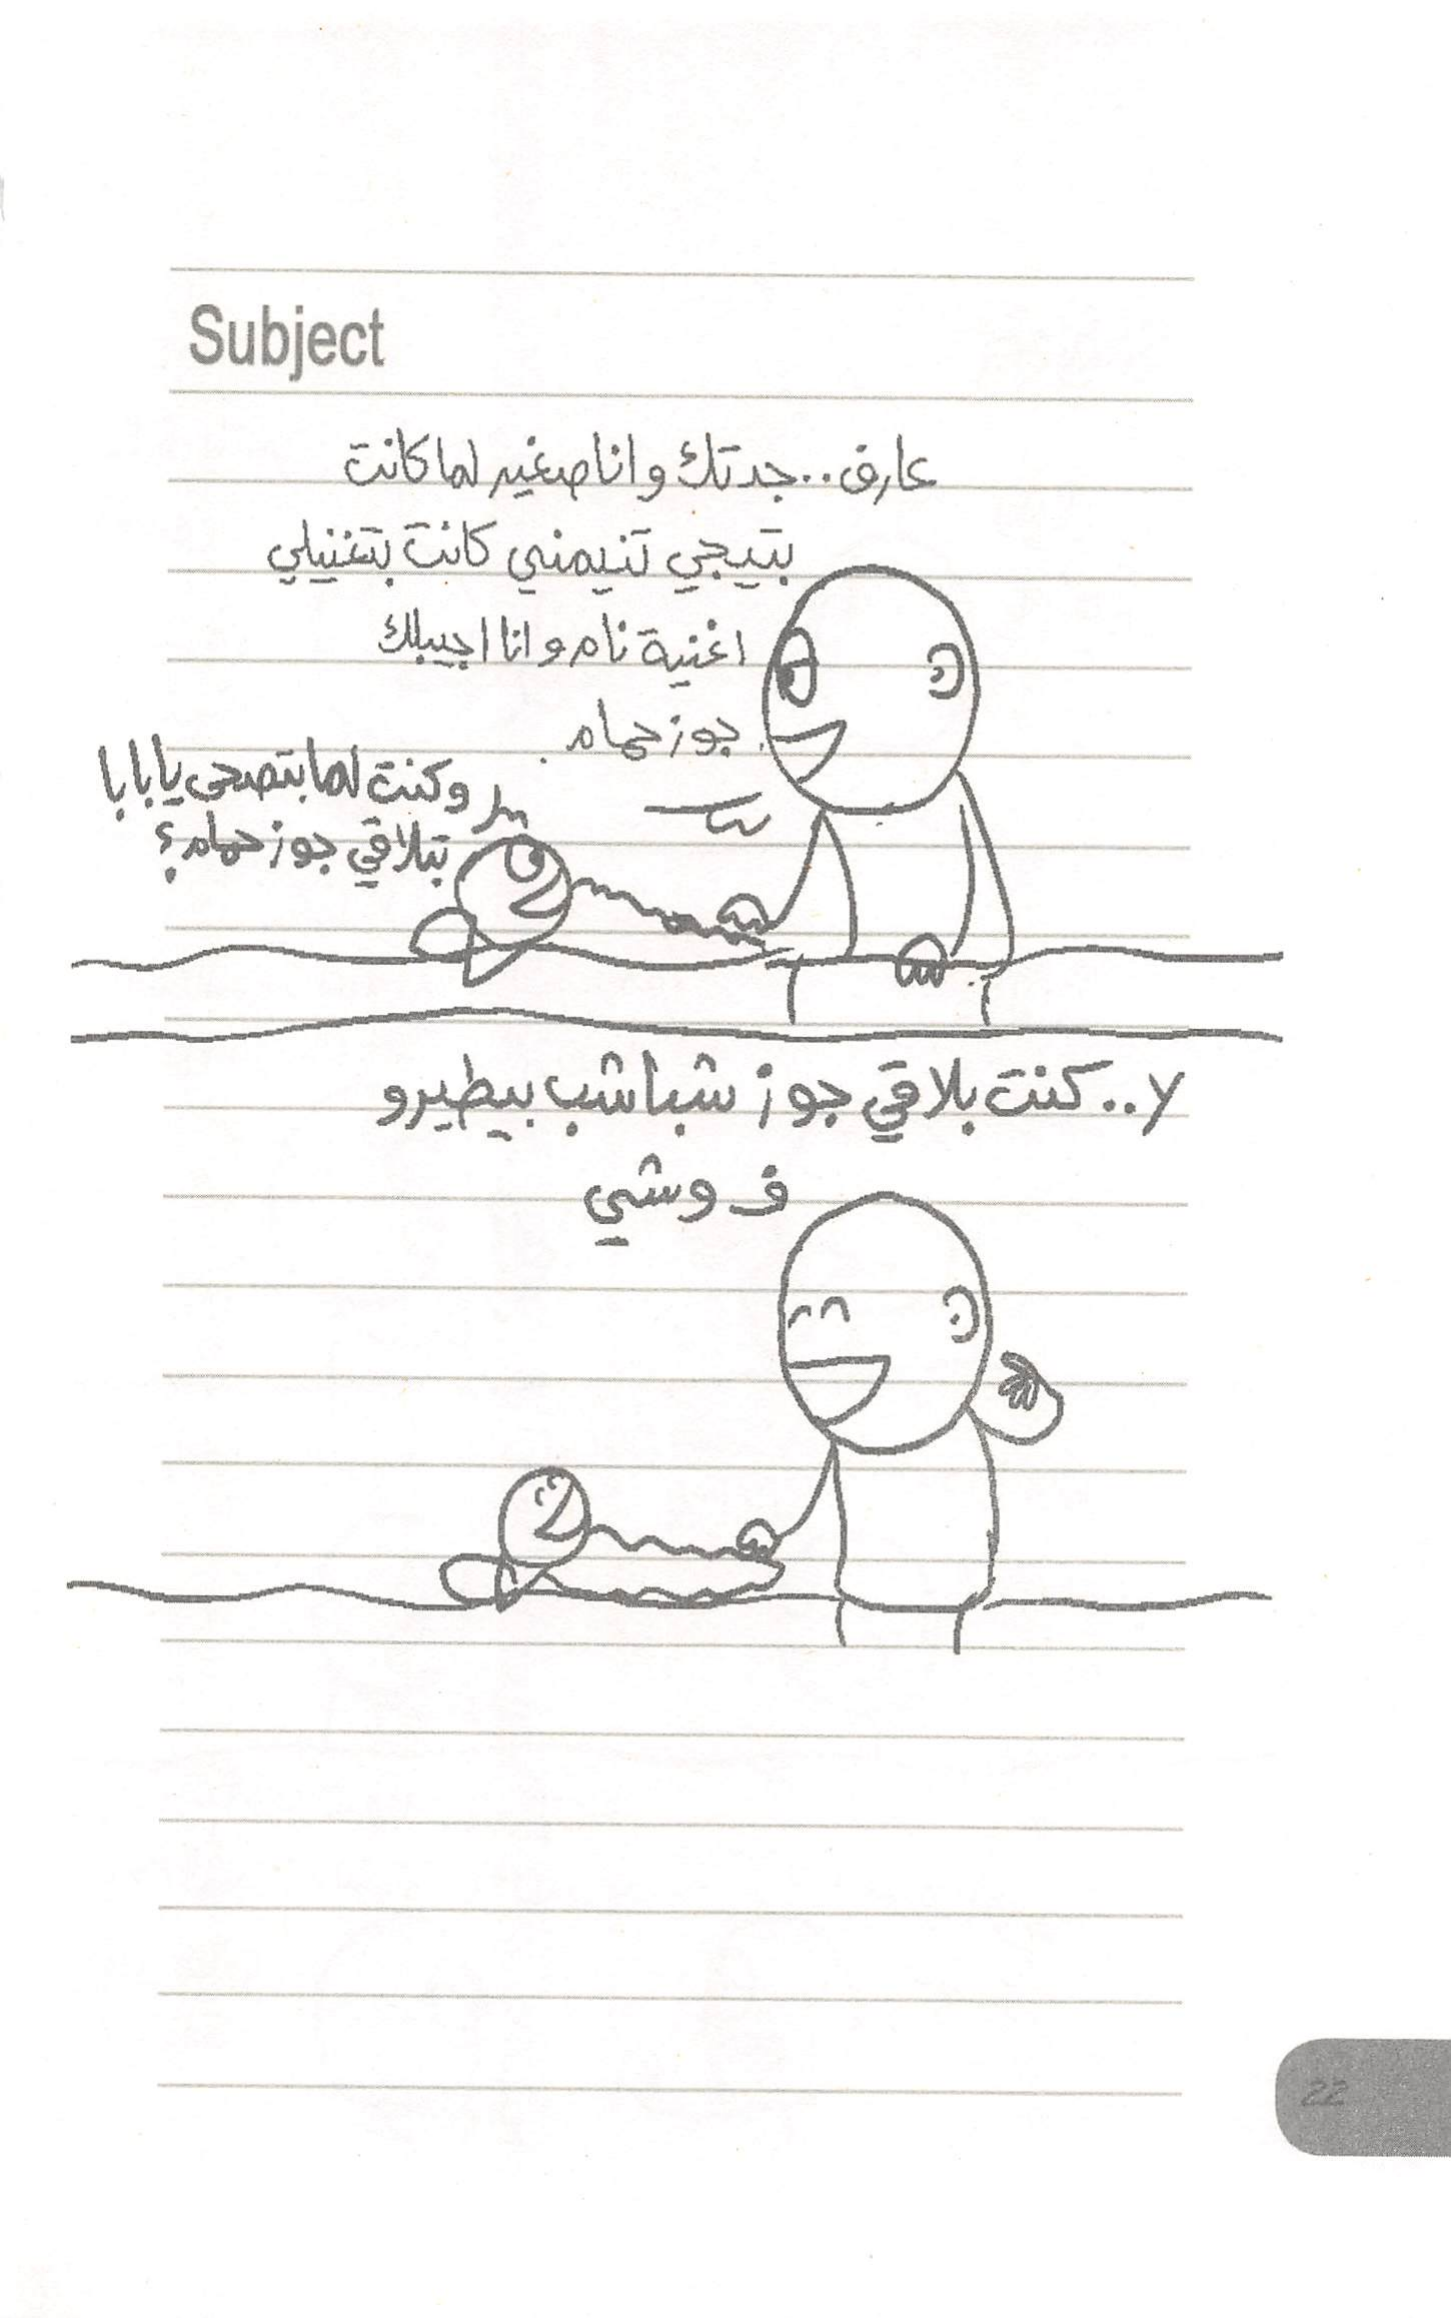 Subject
عارف..جدتك وانا صغير لما كانت
بتيجي تنيمني كانت بتغنيلي
اغنية نام وانا اجيبلك
جوز حمام
وكنت لما بتصحى يا بابا
بتلاقي جوز حمام؟
لا..كنت بلاقي جوز شباشب بيطيرو
ف وشي
22